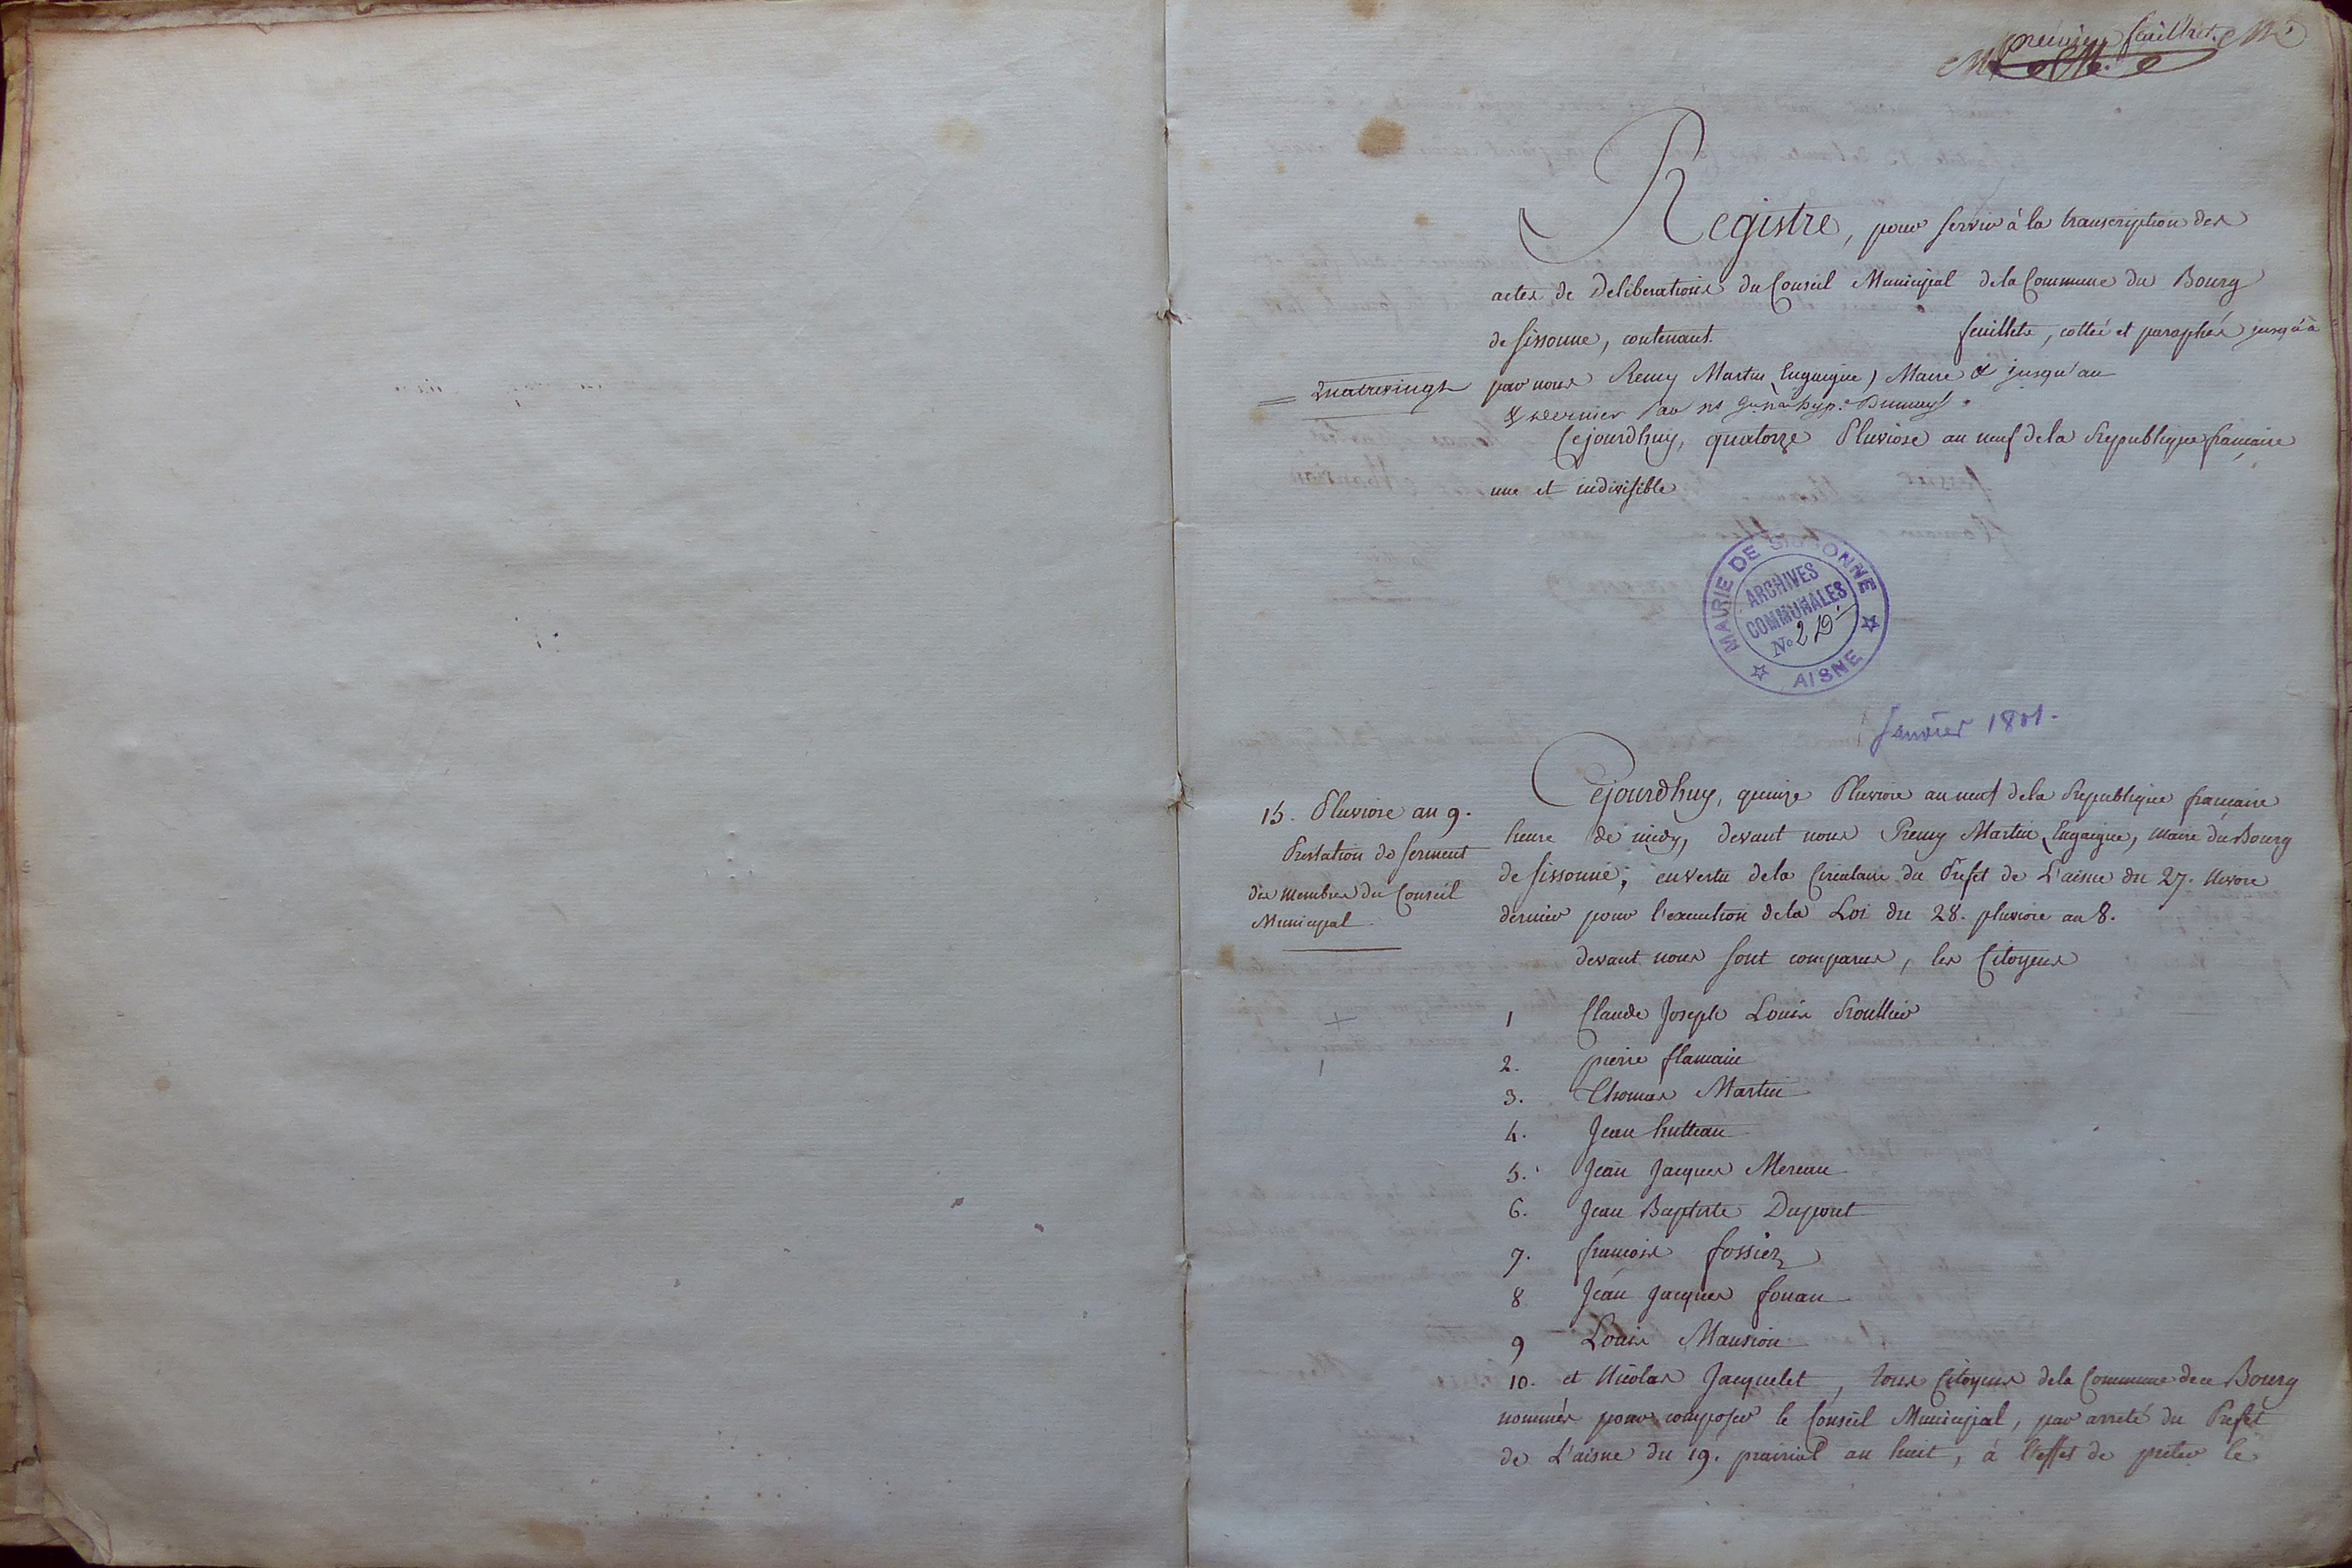 premier feuillet.
Registre, pour servir à la transcription des
actes de deliberations du Conseil Municipal de la Commune du Bourg
de Sissonne, contenant feuillets, cottés et paraphés jusqu'à
quatrevingt
par nous Remy Martin Engaigne, Maire & jusqu'au
& dernier par
Cejourdhuy, quatorze Pluviose an neuf de la Republique francaise
une et indivisible
MAIRIE DE SISSONNE
ARCHIVES
COMMUNALES
No 2 D
AISNE
Janvier 1801.
15. Pluviose an 9.
Prestation de serment
des membres du Conseil
Municipal
Cejourdhuy, quinze Pluviose an neuf de la Republique francaise
heure de midy, devant nous Remy Martin Engaigne, maire du Bourg
de Sissonne; en vertu de la Circulaire du Prefet de L'aisne du 27. Nivose
dernier pour l'execution de la Loi du 28. pluviose an 8.
devant nous sont comparus, les Citoyens
1 Claude Joseph Louis
2. pierre flamain
3. Thomas Martin
4. Jean hutteau
5. Jean Jacques Mereau
6. Jean Baptiste Dupont
7. francois fossier
8 Jean Jacques fouan
9 Louis Mansion
10. et Nicolas Jacquelet, tous Citoyens de la Commune de ce Bourg
nommés pour composer le Conseil Municipal, par arreté du Prefet
de L'aisne du 19. prairial an huit, à l'effet de preter le